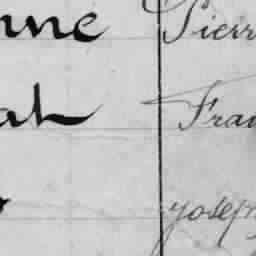 nne Pierr
ah Fran
Joseph